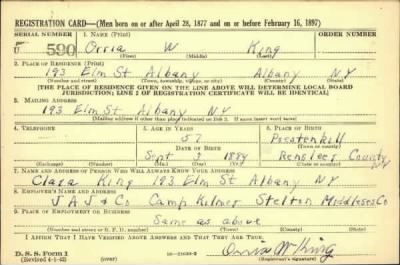 REGISTRATION CARD—(Men born on or after April 28, 1877 and on or before February 16, 1897)
SERIAL NUMBER 1. NAME (Print) ORDER NUMBER
U 590 Orria W King
(First) (Middle) (Last)
2. PLACE OF RESIDENCE (Print)
193 Elm St Albany Albany N Y
(Number and street) (Town, township, village, or city) (County) (State)
[THE PLACE OF RESIDENCE GIVEN ON THE LINE ABOVE WILL DETERMINE LOCAL BOARD
JURISDICTION; LINE 2 OF REGISTRATION CERTIFICATE WILL BE IDENTICAL]
3. MAILING ADDRESS
193 Elm St Albany N Y
[Mailing address if other than place indicated on line 2. If same insert word same]
4. TELEPHONE 5. AGE IN YEARS 6. PLACE OF BIRTH
57 Poestenkill
DATE OF BIRTH (Town or county)
Sept 3 1884 Rensleer County
(Exchange) (Number) (Mo.) (Day) (Yr.) (State or country)
7. NAME AND ADDRESS OF PERSON WHO WILL ALWAYS KNOW YOUR ADDRESS
Clara King 193 Elm St Albany N Y
8. EMPLOYER'S NAME AND ADDRESS
J A J & Co Camp Kilmer Stelton Middlesex Co
9. PLACE OF EMPLOYMENT OR BUSINESS
Same as above
(Number and street or R. F. D. number) (Town) (County) (State)
I AFFIRM THAT I HAVE VERIFIED ABOVE ANSWERS AND THAT THEY ARE TRUE.
D. S. S. Form 1
(Revised 4-1-42) Orria W King
(Registrant's signature)